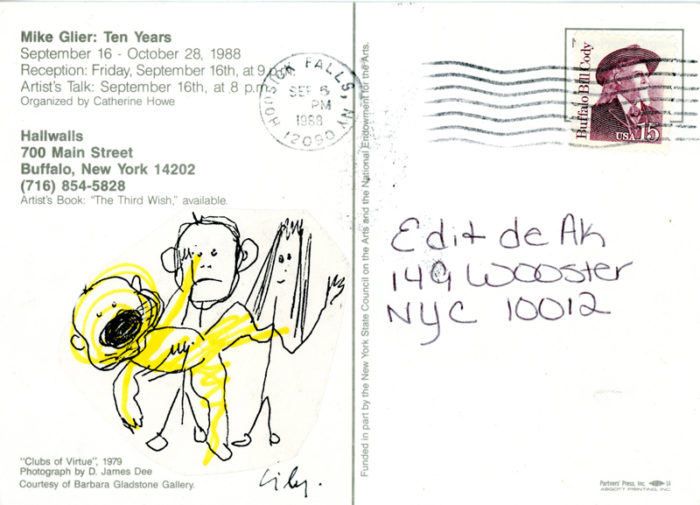 Mike Glier: Ten Years
September 16 - October 28, 1988
Reception: Friday, September 16th, at 9
Artist's Talk: September 16th, at 8 p.m.
Organized by Catherine Howe
Hallwalls
700 Main Street
Buffalo, New York 14202
(716) 854-5828
Artist's Book: "The Third Wish," available.
"Clubs of Virtue", 1979
Photograph by D. James Dee
Courtesy of Barbara Gladstone Gallery.
HOOSICK FALLS, NY
SEP 6
PM
1988
12090
Funded in part by the New York State Council on the Arts and the National Endowment for the Arts.
Buffalo Bill Cody
USA 15
Edit de Ak
149 Wooster
NYC 10012
Partners' Press, Inc.
ABGOFT PRINTING, INC.